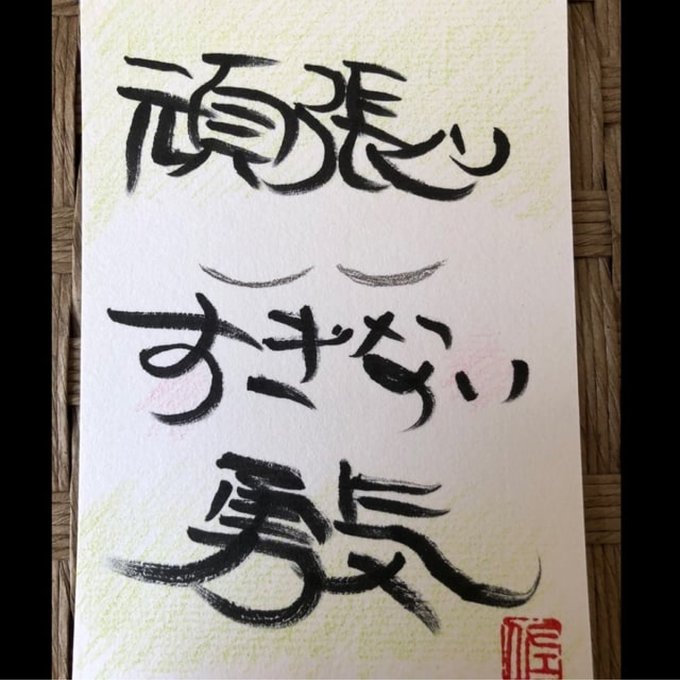 頑張り
すぎない
勇気
佐